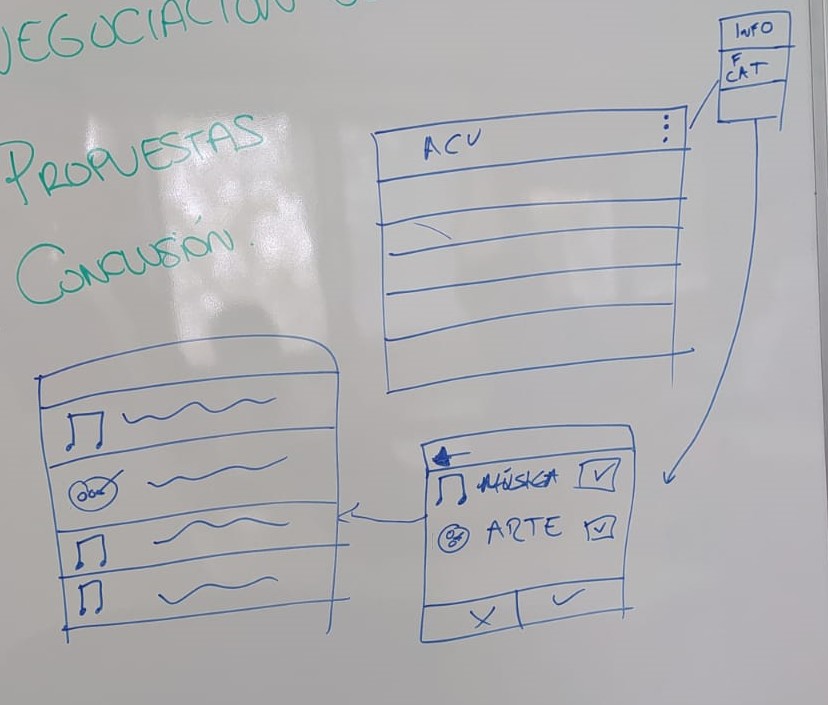 NEGOCIACIÓN
PROPUESTAS
CONCLUSIÓN.
INFO
F
CAT
ACU
MÚSICA
ARTE